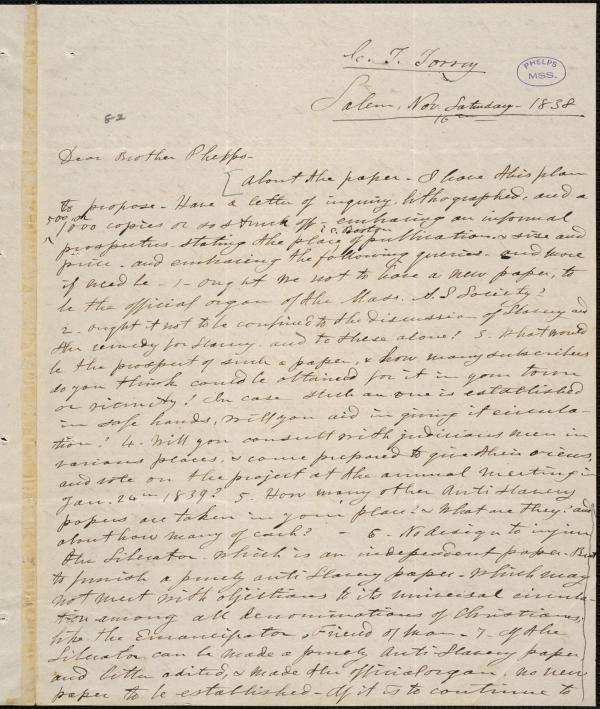 C. T. Torrey
PHELPS
MSS.
Salem, Nov. Saturday - 1838
16 th
82
Dear Brother Phelps -
[About the paper - I have this plan
to propose - Have a letter of inquiry, lithographed, and a
500 or
1000 copies or so struck off - embracing an informal
i.e. Boston
prospectus - stating the place of publication - & size and
price - and embracing the following queries - and more
if need be - 1 - ought we not to have a new paper, to
be the official organ of the Mass. A. S Society?
2 - ought it not to be confined to the discussion of Slavery and
the remedy for Slavery - and to these alone? 3. What would
be the prospect of such a paper, & how many subscribers
do you think could be obtained for it in your town
or vicinity? In case such an one is established
in safe hands, will you aid in giving it circula-
tion? 4. Will you consult with judicious men in
various places, & come prepared to give their views,
and vote on the project at the annual meeting in
Jan. 24th 1839? 5. How many other Anti Slavery
papers are taken in your place? & What are they? and
about how many of each? - 6. No design to injure
the Liberator - which is an independent paper - But
to furnish a purely anti Slavery paper - which may
not meet with objections to its universal circula-
tion among all denominations of Christians,
like the Emancipator, & Friend of Man - 7. If the
Liberator, can be made a purely Anti-Slavery paper
and better edited, & made the official organ, no new
paper to be established - If it is to continue to